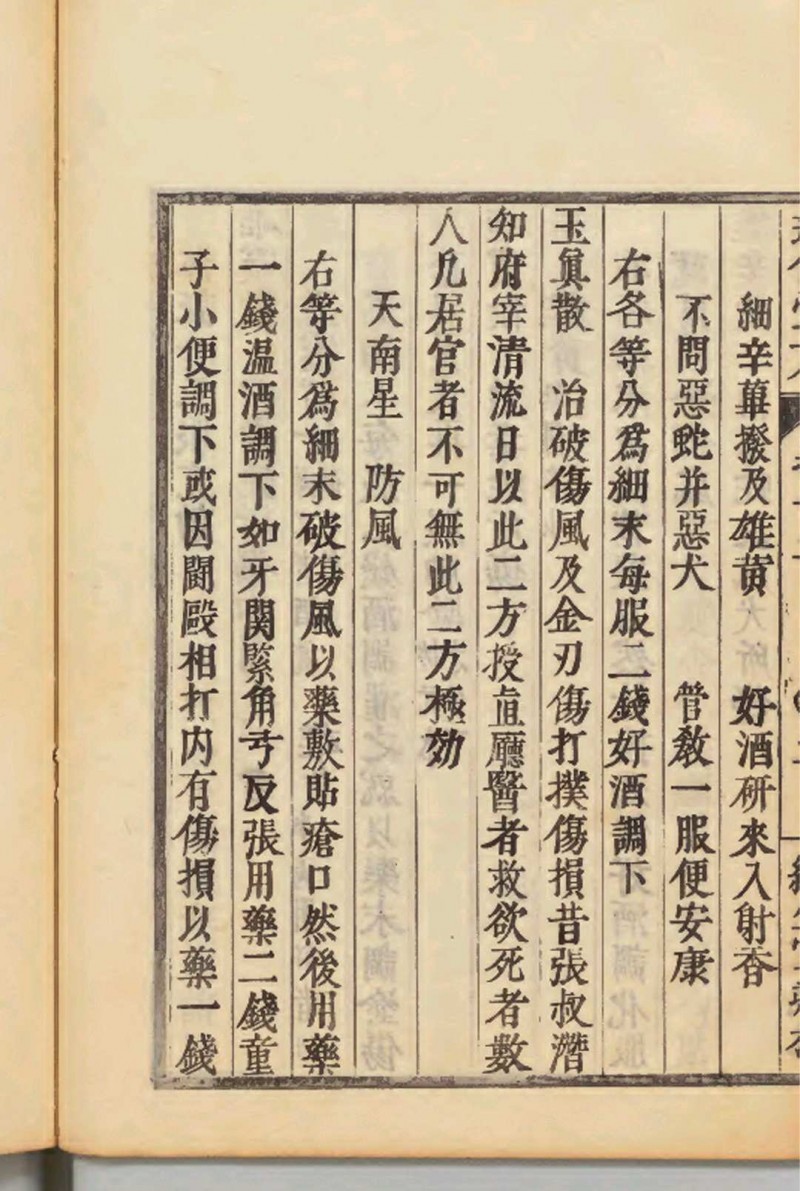 細辛蓽撥及雄黄　好酒研來入射香
不問惡蛇并惡犬　管敎一服便安康
右各等分爲細末每服二錢好酒調下
玉眞散　治破傷風及金刃傷打撲傷損昔張叔濳
知府宰清流日以此二方授直廳醫者救欲死者數
人凡居官者不可無此二方極効
天南星　防風
右等分爲細末破傷風以藥敷貼瘡口然後用藥
一錢温酒調下如牙関緊角弓反張用藥二錢童
子小便調下或因鬬毆相打内有傷損以藥一錢